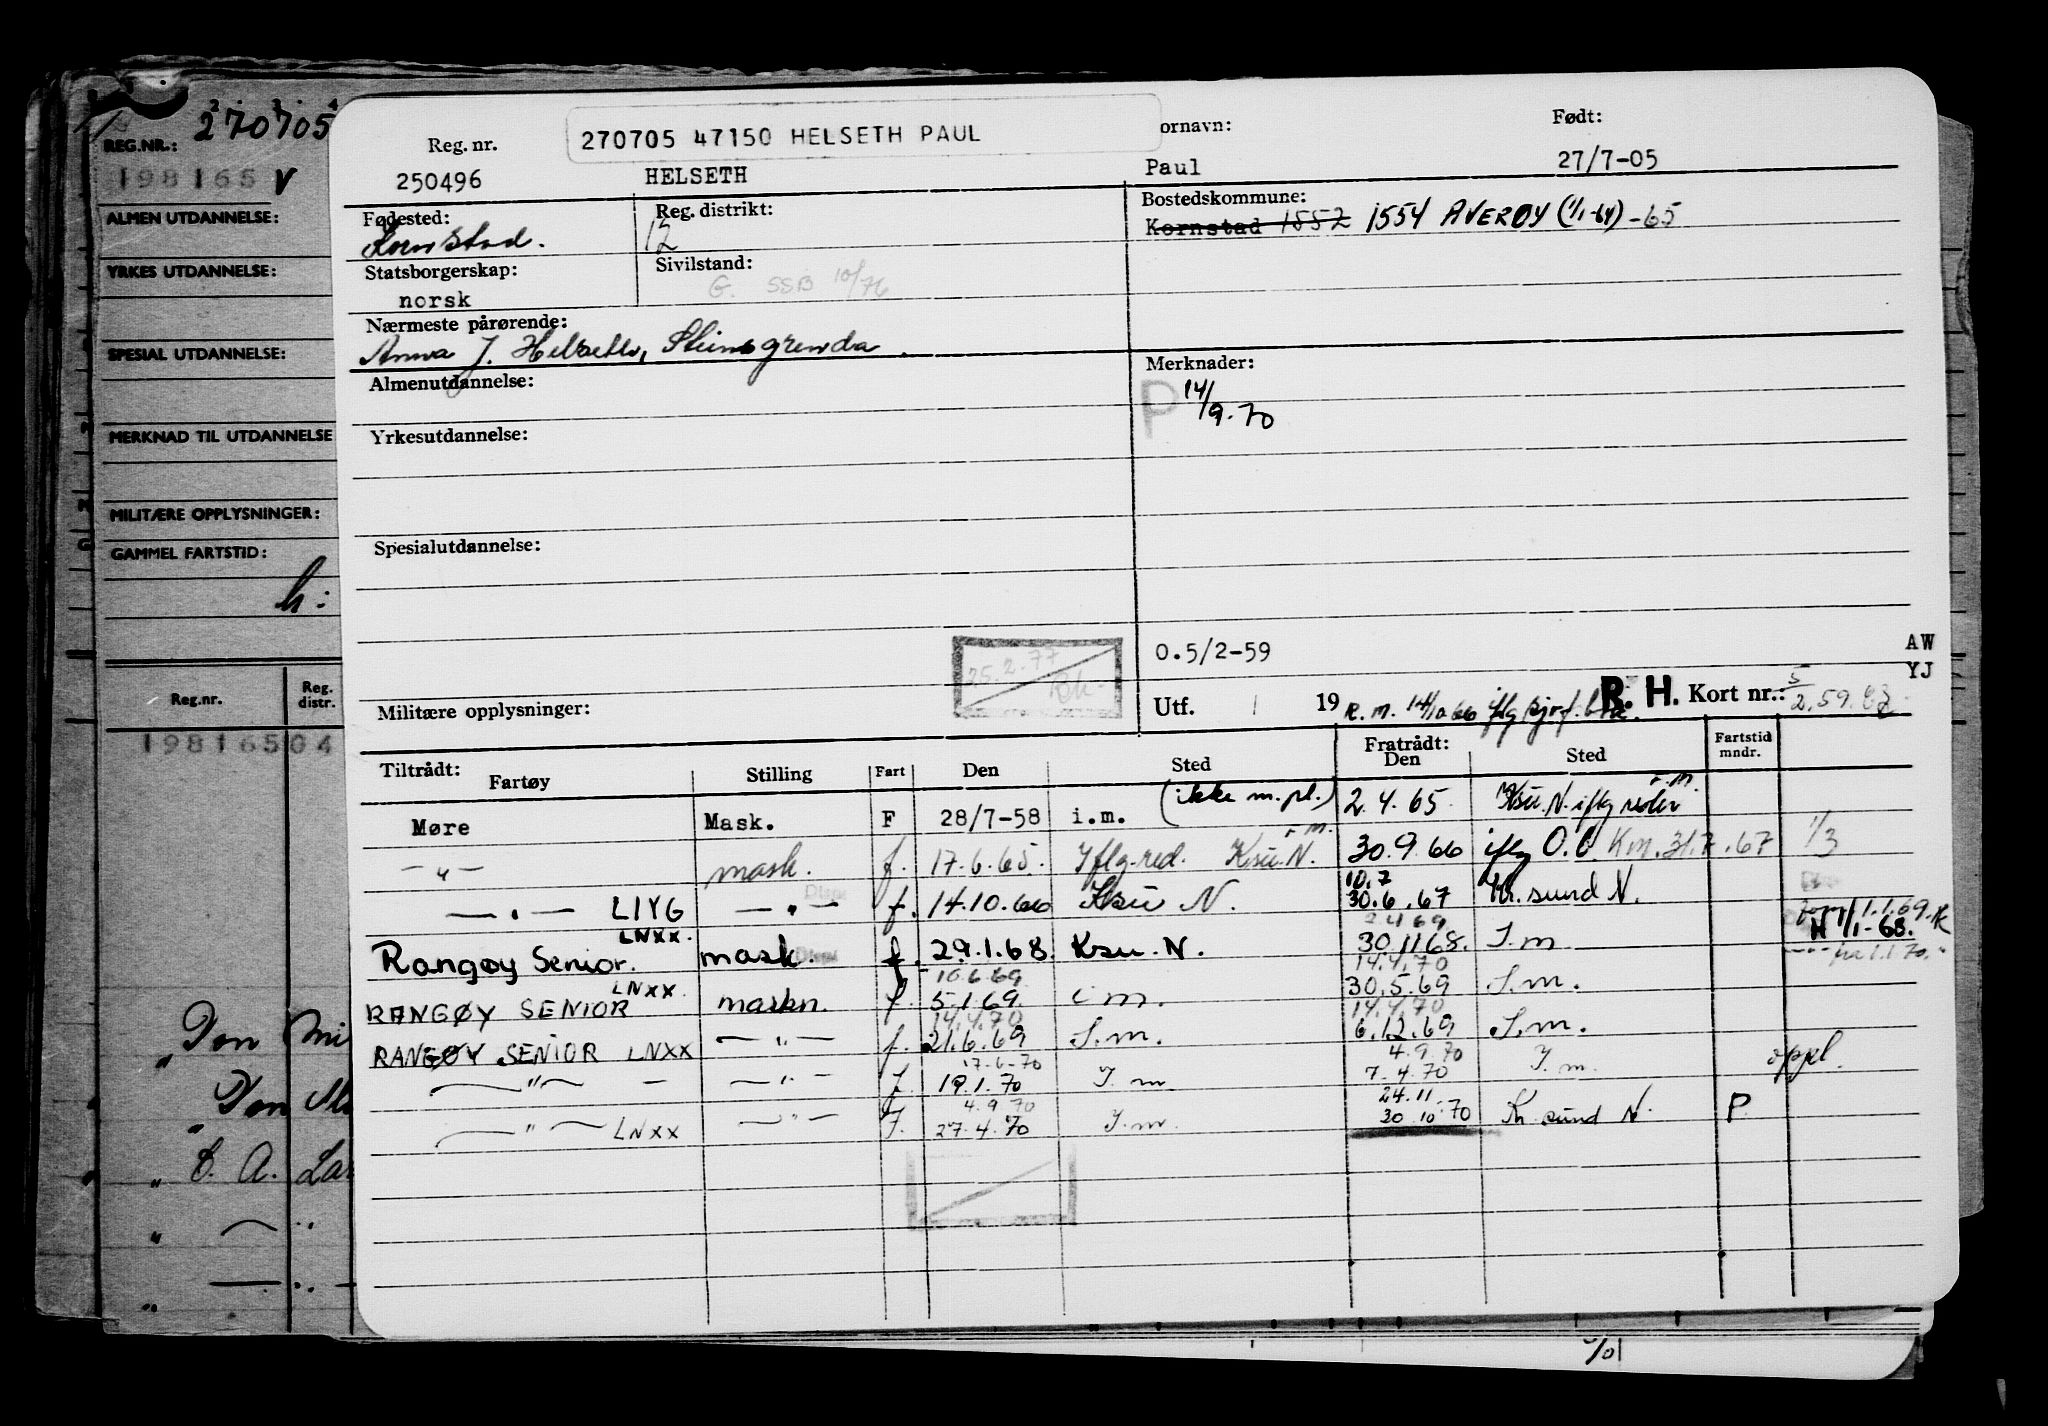 270705
REG.NR.:
198165 V
ALMEN UTDANNELSE:
YRKES UTDANNELSE:
SPESIAL UTDANNELSE:
MERKNAD TIL UTDANNELSE
MILITÆRE OPPLYSNINGER:
GAMMEL FARTSTID:
h:
Reg.nr. Reg. distr.
198165 04
" Don Mi
" Don
" C. A. Lar
Reg. nr. 270705 47150 HELSETH PAUL ornavn: Født:
250496 HELSETH Paul 27/7-05
Fødested: Reg. distrikt: Bostedskommune:
Kornstad. 12 Kornstad 1552 1554 AVERØY (1/1-64) -65
Statsborgerskap: Sivilstand:
norsk G. SSB 10/76
Nærmeste pårørende:
Anna J. Helseth, Steinsgrenda.
Almenutdannelse: Merknader:
P 14/9.70
Yrkesutdannelse:
Spesialutdannelse:
25.2.77
O.5/2-59 AW
YJ
Militære opplysninger: Utf. 19 R.M. 14/10 66 iflg R. H. Kort nr.: 5/2.59.
Tiltrådt: Fartøy Stilling Fart Den Sted Fratrådt: Den Sted Fartstid mndr.
Møre Mask. F 28/7-58 i.m. (ikke m.pl.) 2.4.65. Ksu. N. iflg reder i.m.
- " - mask. f. 17.6.65. Iflg. red. Ksu. N. i.m. 30.9.66 iflg O.C. Km. 31.7.67 1/3
- " - LIYG - " - f. 14.10.66 Ksu N. 10.7 30.6.67 Kr.sund N.
Rangøy Senior. LNXX. mask. f. 29.1.68. Ksu. N. 2.4.69 30.11.68. I.m. 1.1.69. 1/1-68.
RANGØY SENIOR LNXX. maskn. f. 10.6.69 5.1.69. i m. 14.4.70 30.5.69 I.m. 1.1.70.
RANGØY SENIOR LNXX - " - f. 14.4.70 21.6.69 I.m. 14.4.70 6.12.69 I.m.
- " - - " - f. 17-6-70 19.1.70 I.m 4.9.70 7-4.70 I.m. oppl.
- " - LNXX - " - f. 4.9.70 27.4.70 I.m. 24.11. 30.10.70 Kr. sund N. P